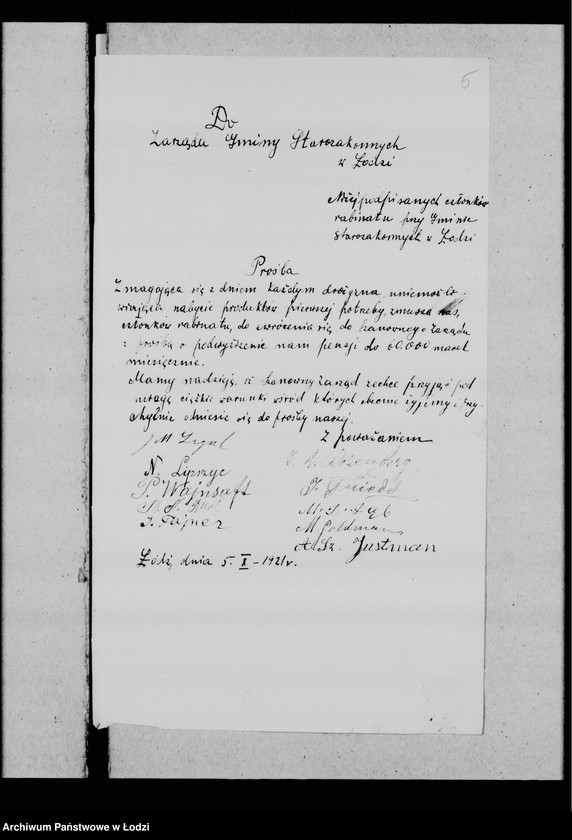 5
Do
Zarządu Gminy Starozakonnych
w Łodzi
Niżej podpisanych członków
rabinatu przy Gminie
Starozakonnych w Łodzi
Prośba
Wzmagająca się z dniem każdym drożyzna, uniemożli-
wiająca nabycie produktów pierwszej potrzeby, zmusza nas,
członków rabinatu, do zwrócenia się do Szanownego Zarządu
z prośbą o podwyższenie nam pensji do 60.000 marek
miesięcznie.
Mamy nadzieję, iż Szanowny Zarząd zechce przyjąć pod
uwagę ciężkie warunki wśród których obecnie żyjemy i przy-
chylnie odniesie się do prośby naszej.
Z poważaniem
J M Segal
N. Lypszyc
P. Wajnsaft
J. Fajner
Friede
M. Goldman
A. Sz. Justman
Łódź, dnia 5. X - 1921 r.
Archiwum Państwowe w Łodzi